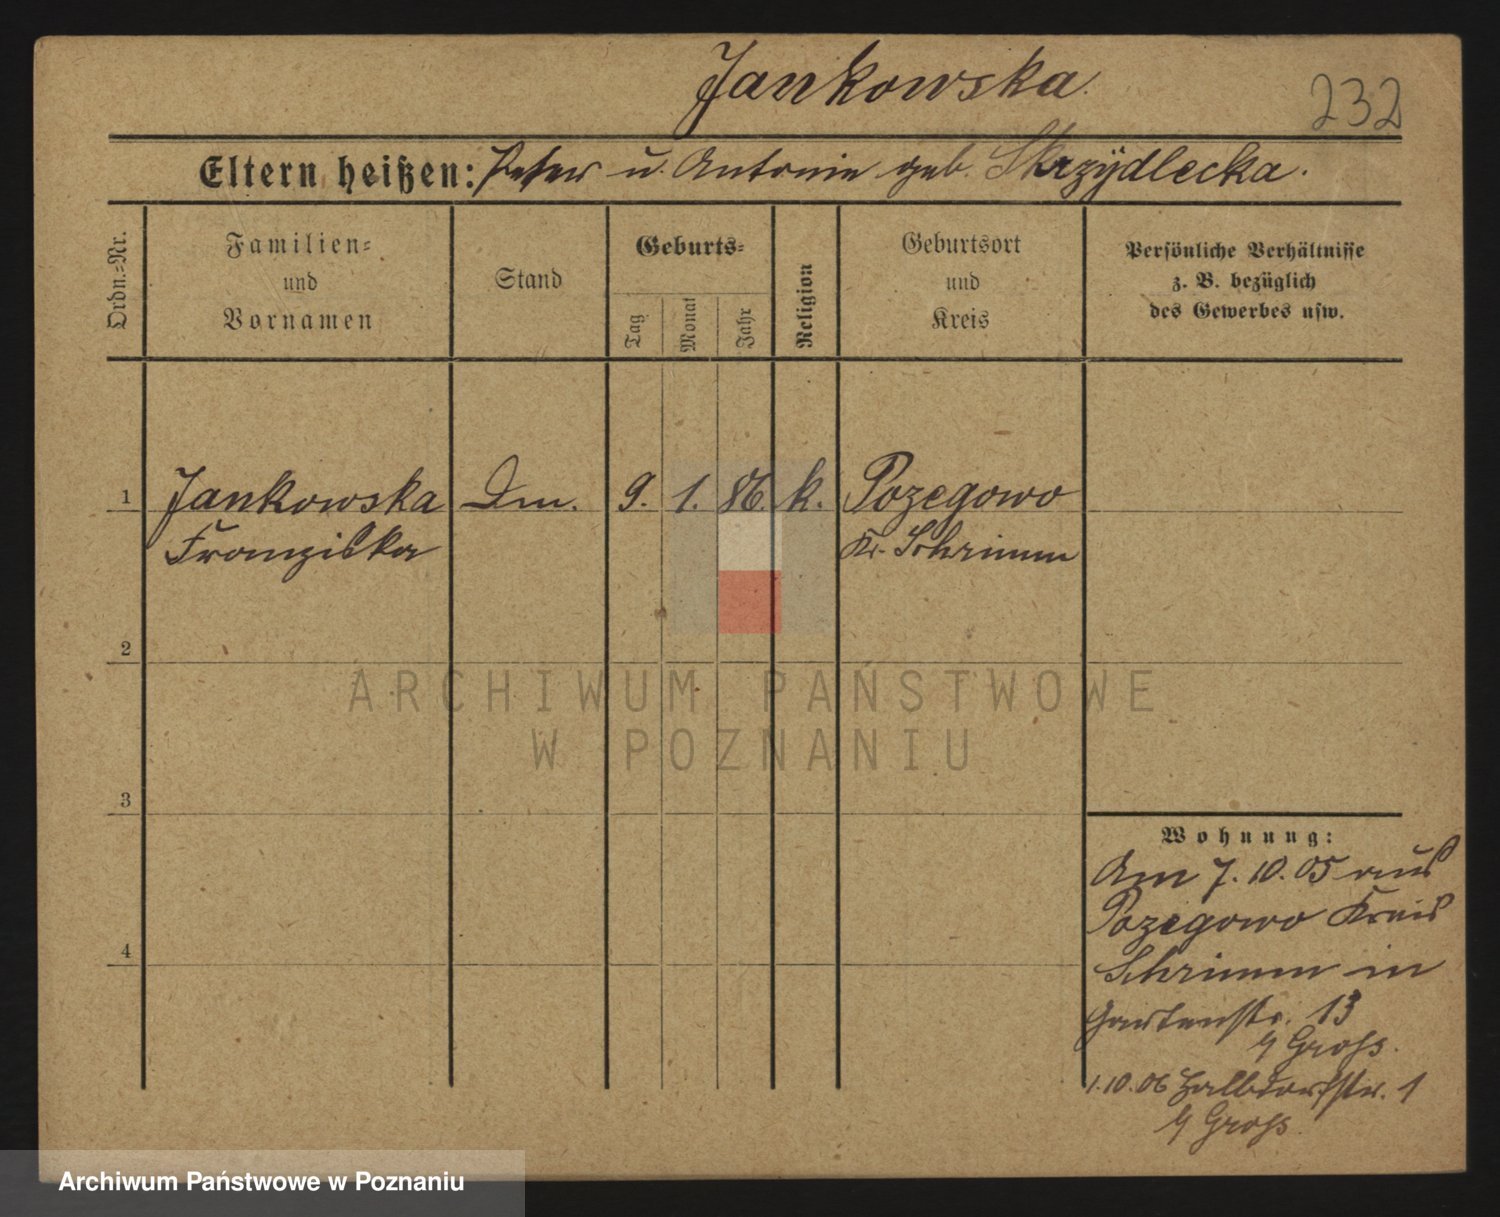 Jankowska.
232
Eltern heißen: Peter u. Antonie geb. Skrzÿdlecka.
Ordn.=Nr.
Familien=
und
Vornamen
Stand
Geburts=
Tag
Monat
Jahr
Religion
Geburtsort
und
Kreis
Persönliche Verhältnisse
z. B. bezüglich
des Gewerbes usw.
1 Jankowska Dm. 9. 1. 86. k. Pozegowo
Franziska Kr. Schrimm
2
ARCHIWUM PAŃSTWOWE
W POZNANIU
3
Wohnung:
Am 7. 10. 05 aus
Pozegowo Kreis
4
Schrimm in
Gartenstr. 13
b/ Gross.
1.10.06 Halbdorfstr. 1
b/ Gross.
Archiwum Państwowe w Poznaniu